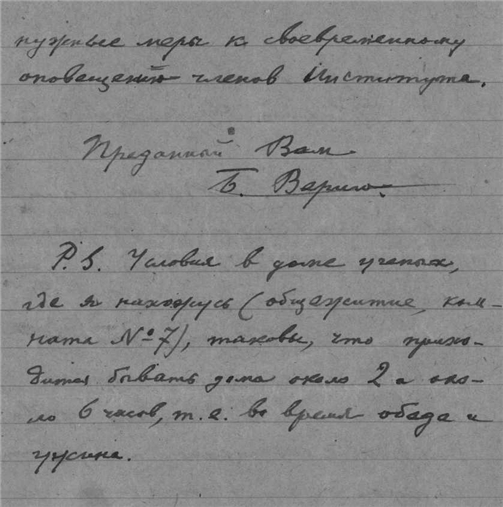 нужные меры к своевременному
оповещению членов Института.
Преданный Вам
Б. Варнеке.
P. S. Условия в доме ученых,
где я нахожусь (общежитие, ком-
ната № 7), таковы, что прихо-
дится бывать дома около 2 и око-
ло 6 часов, т. е. во время обеда и
ужина.